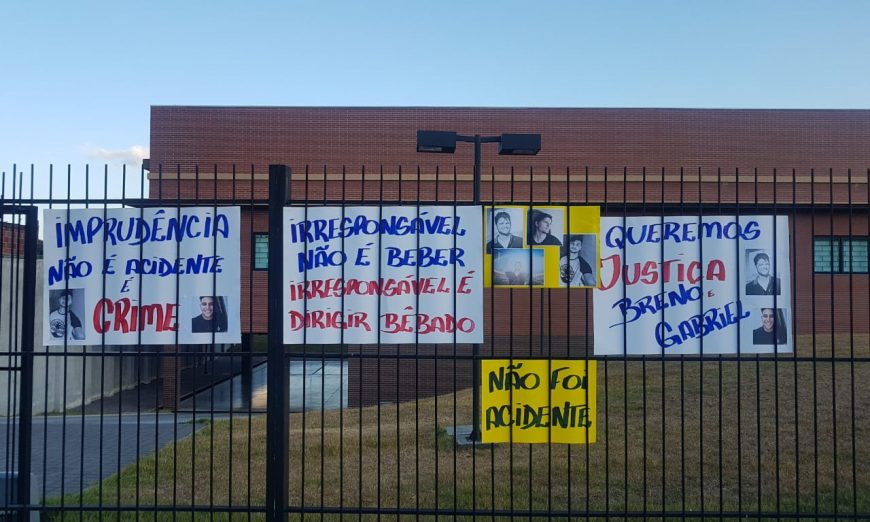 IMPRUDÊNCIA
NÃO É ACIDENTE
É
CRIME
IRRESPONSÁVEL
NÃO É BEBER
IRRESPONSÁVEL É
DIRIGIR BÊBADO
QUEREMOS
JUSTIÇA
BRENO E
GABRIEL
NÃO FOI
ACIDENTE